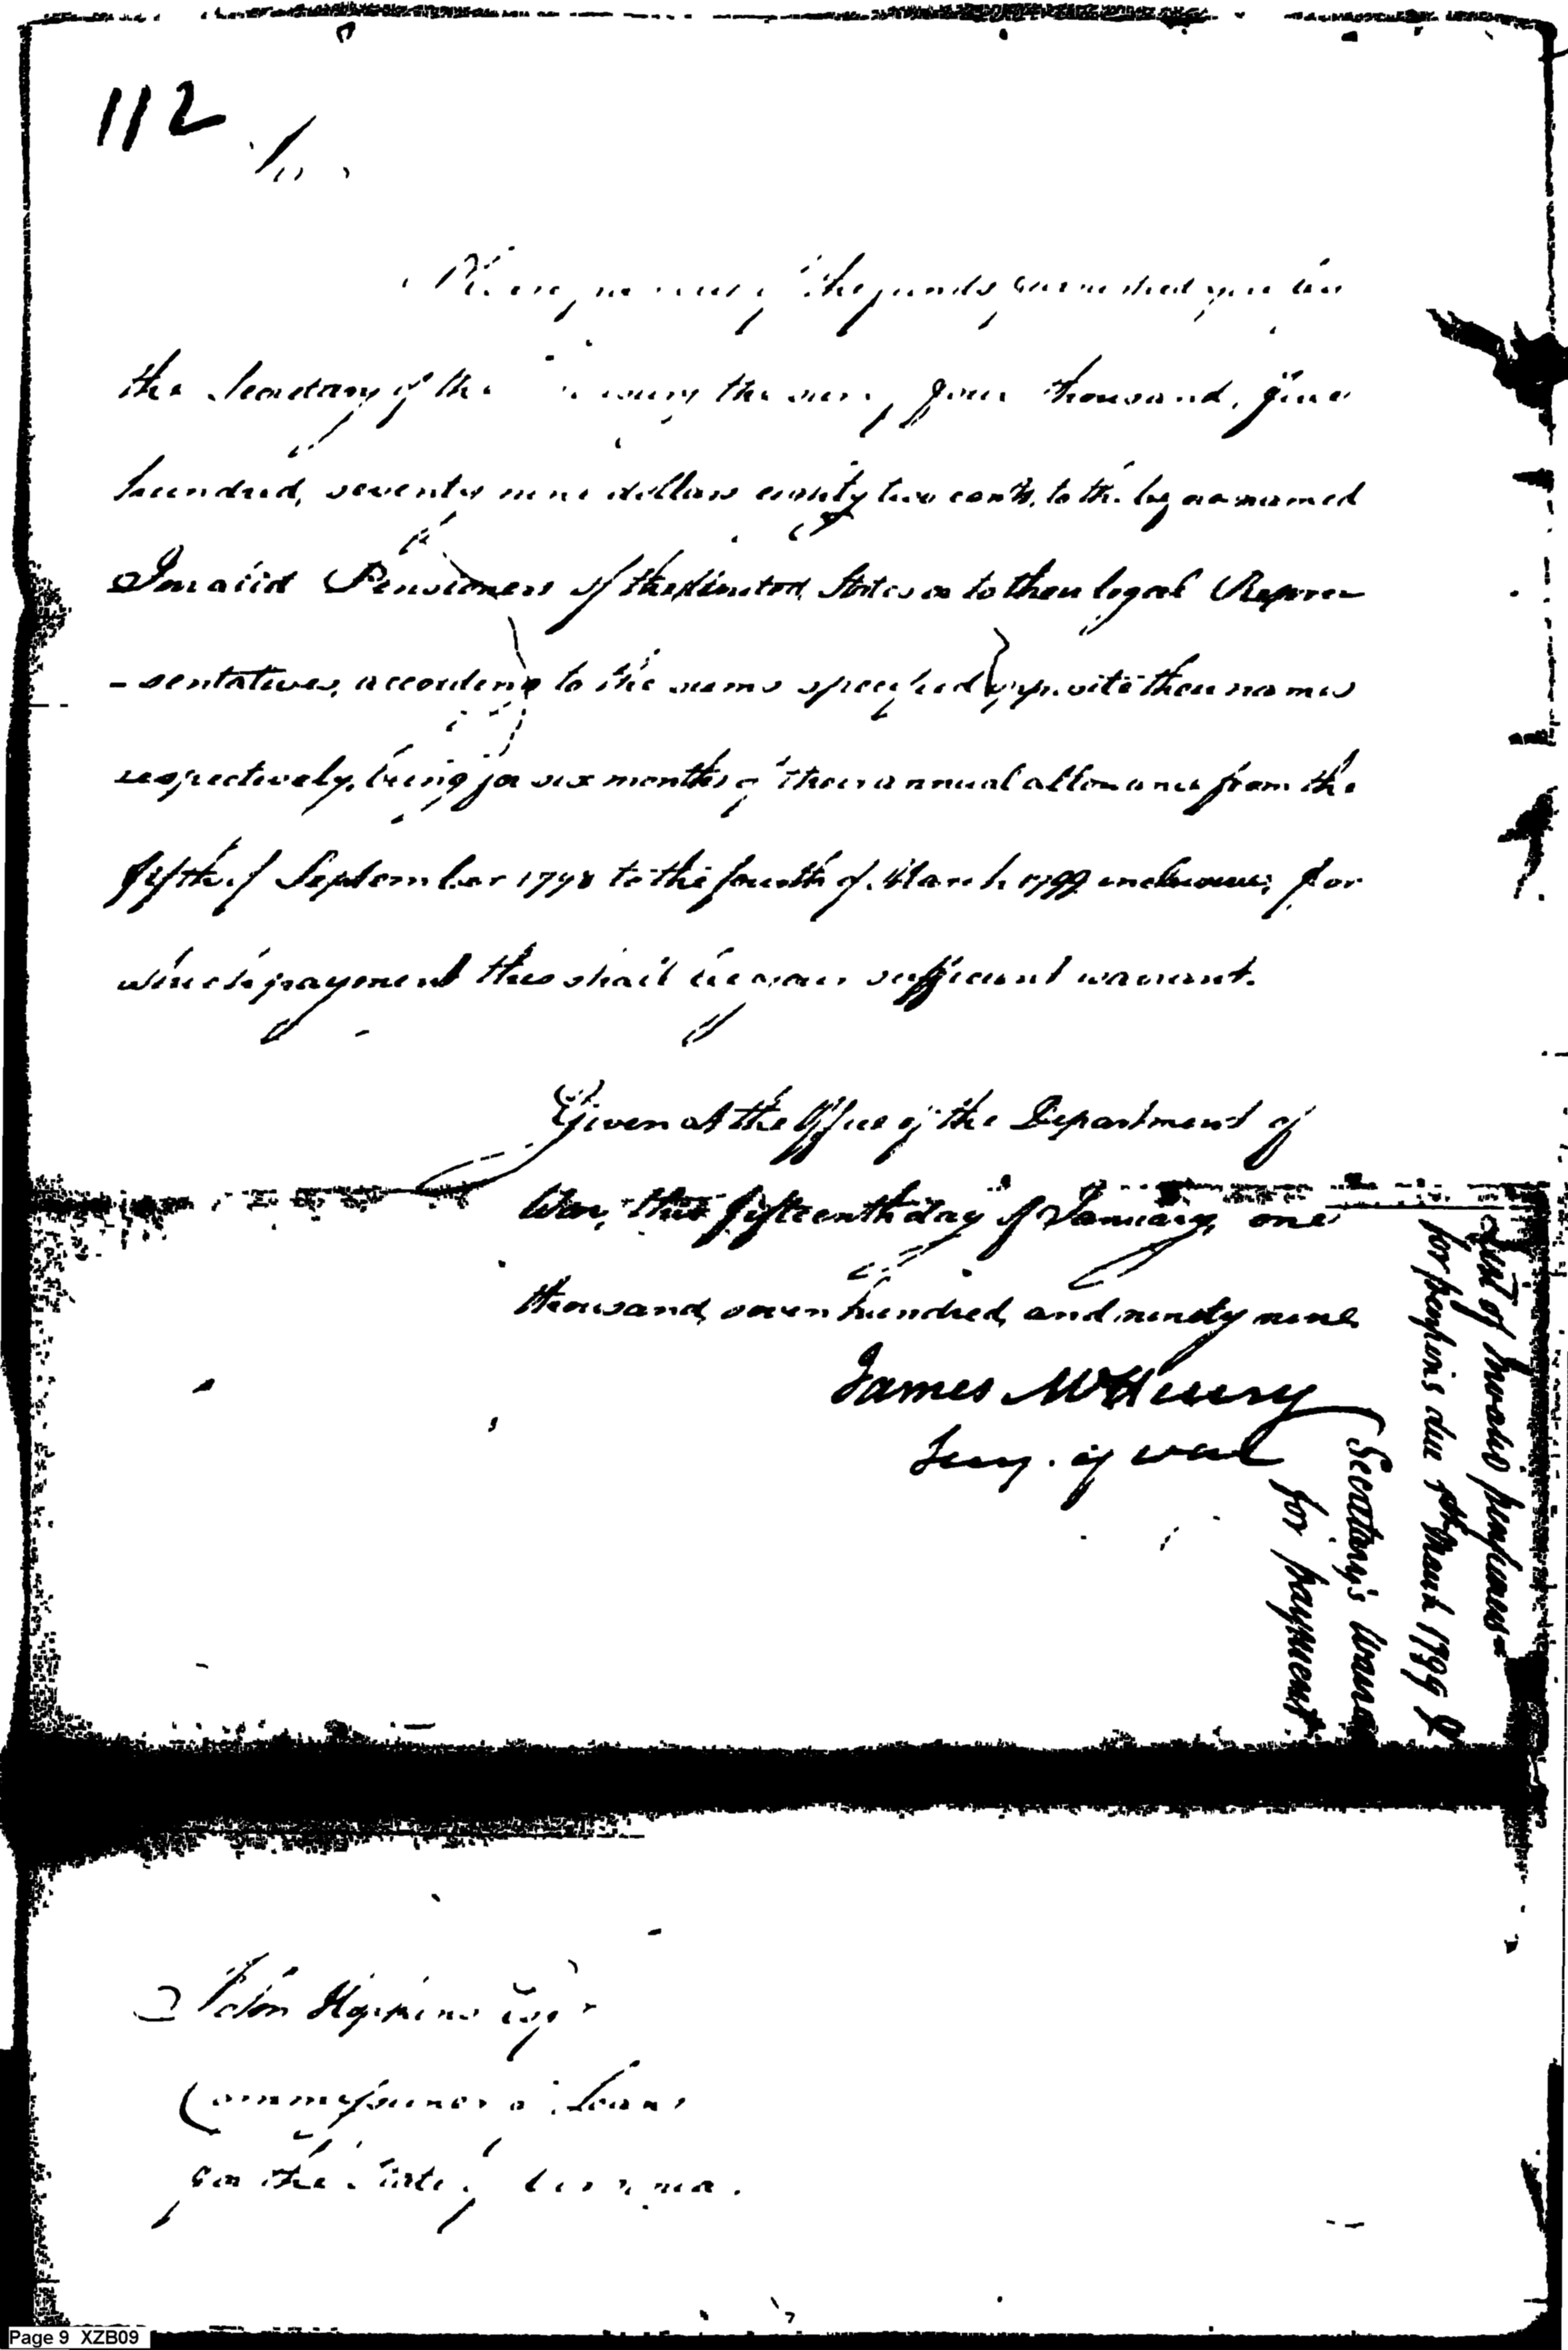 112
the funds furnished you
the Secretary of the the sum of four thousand, five
hundred, seventy nine dollars eighty two cents, to the named
Invalid Pensioners of the United States or to their legal Repre
-sentatives, according to the sums specified opposite their names
respectively, being for six months of their annual allowance from the
fifth of September 1798 to the fourth of March 1799 inclusive; for
which payment this shall be your sufficient warrant.
Given at the Office of the Department of
War, this fifteenth day of January, one
thousand, seven hundred, and ninety nine
James McHenry
Secy. of War
List of Invalid pensioners
for pensions due March 1799 &
Secretary's
for payment
John Hopkins Esqr
Commissioner of Loans
for the State of
Page 9 XZB09